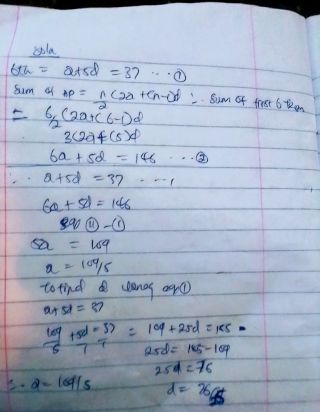 Soln
6th = a+5d = 37 ... ①
Sum of AP = n/2 (2a + (n-1)d ∴ Sum of first 6 term
= 6/2 (2a + (6-1)d
3(2a + (5)d
6a + 5d = 146 ... ②
∴ a+5d = 37 ... ,
6a + 5d = 146
eqn ⑪ - ①
5a = 109
a = 109/5
to find d using eq ①
a+5d = 37
109/5 + 5d = 37 = 109 + 25d = 185
25d = 185 - 109
25d = 76
∴ a = 109/5 d = 76/25